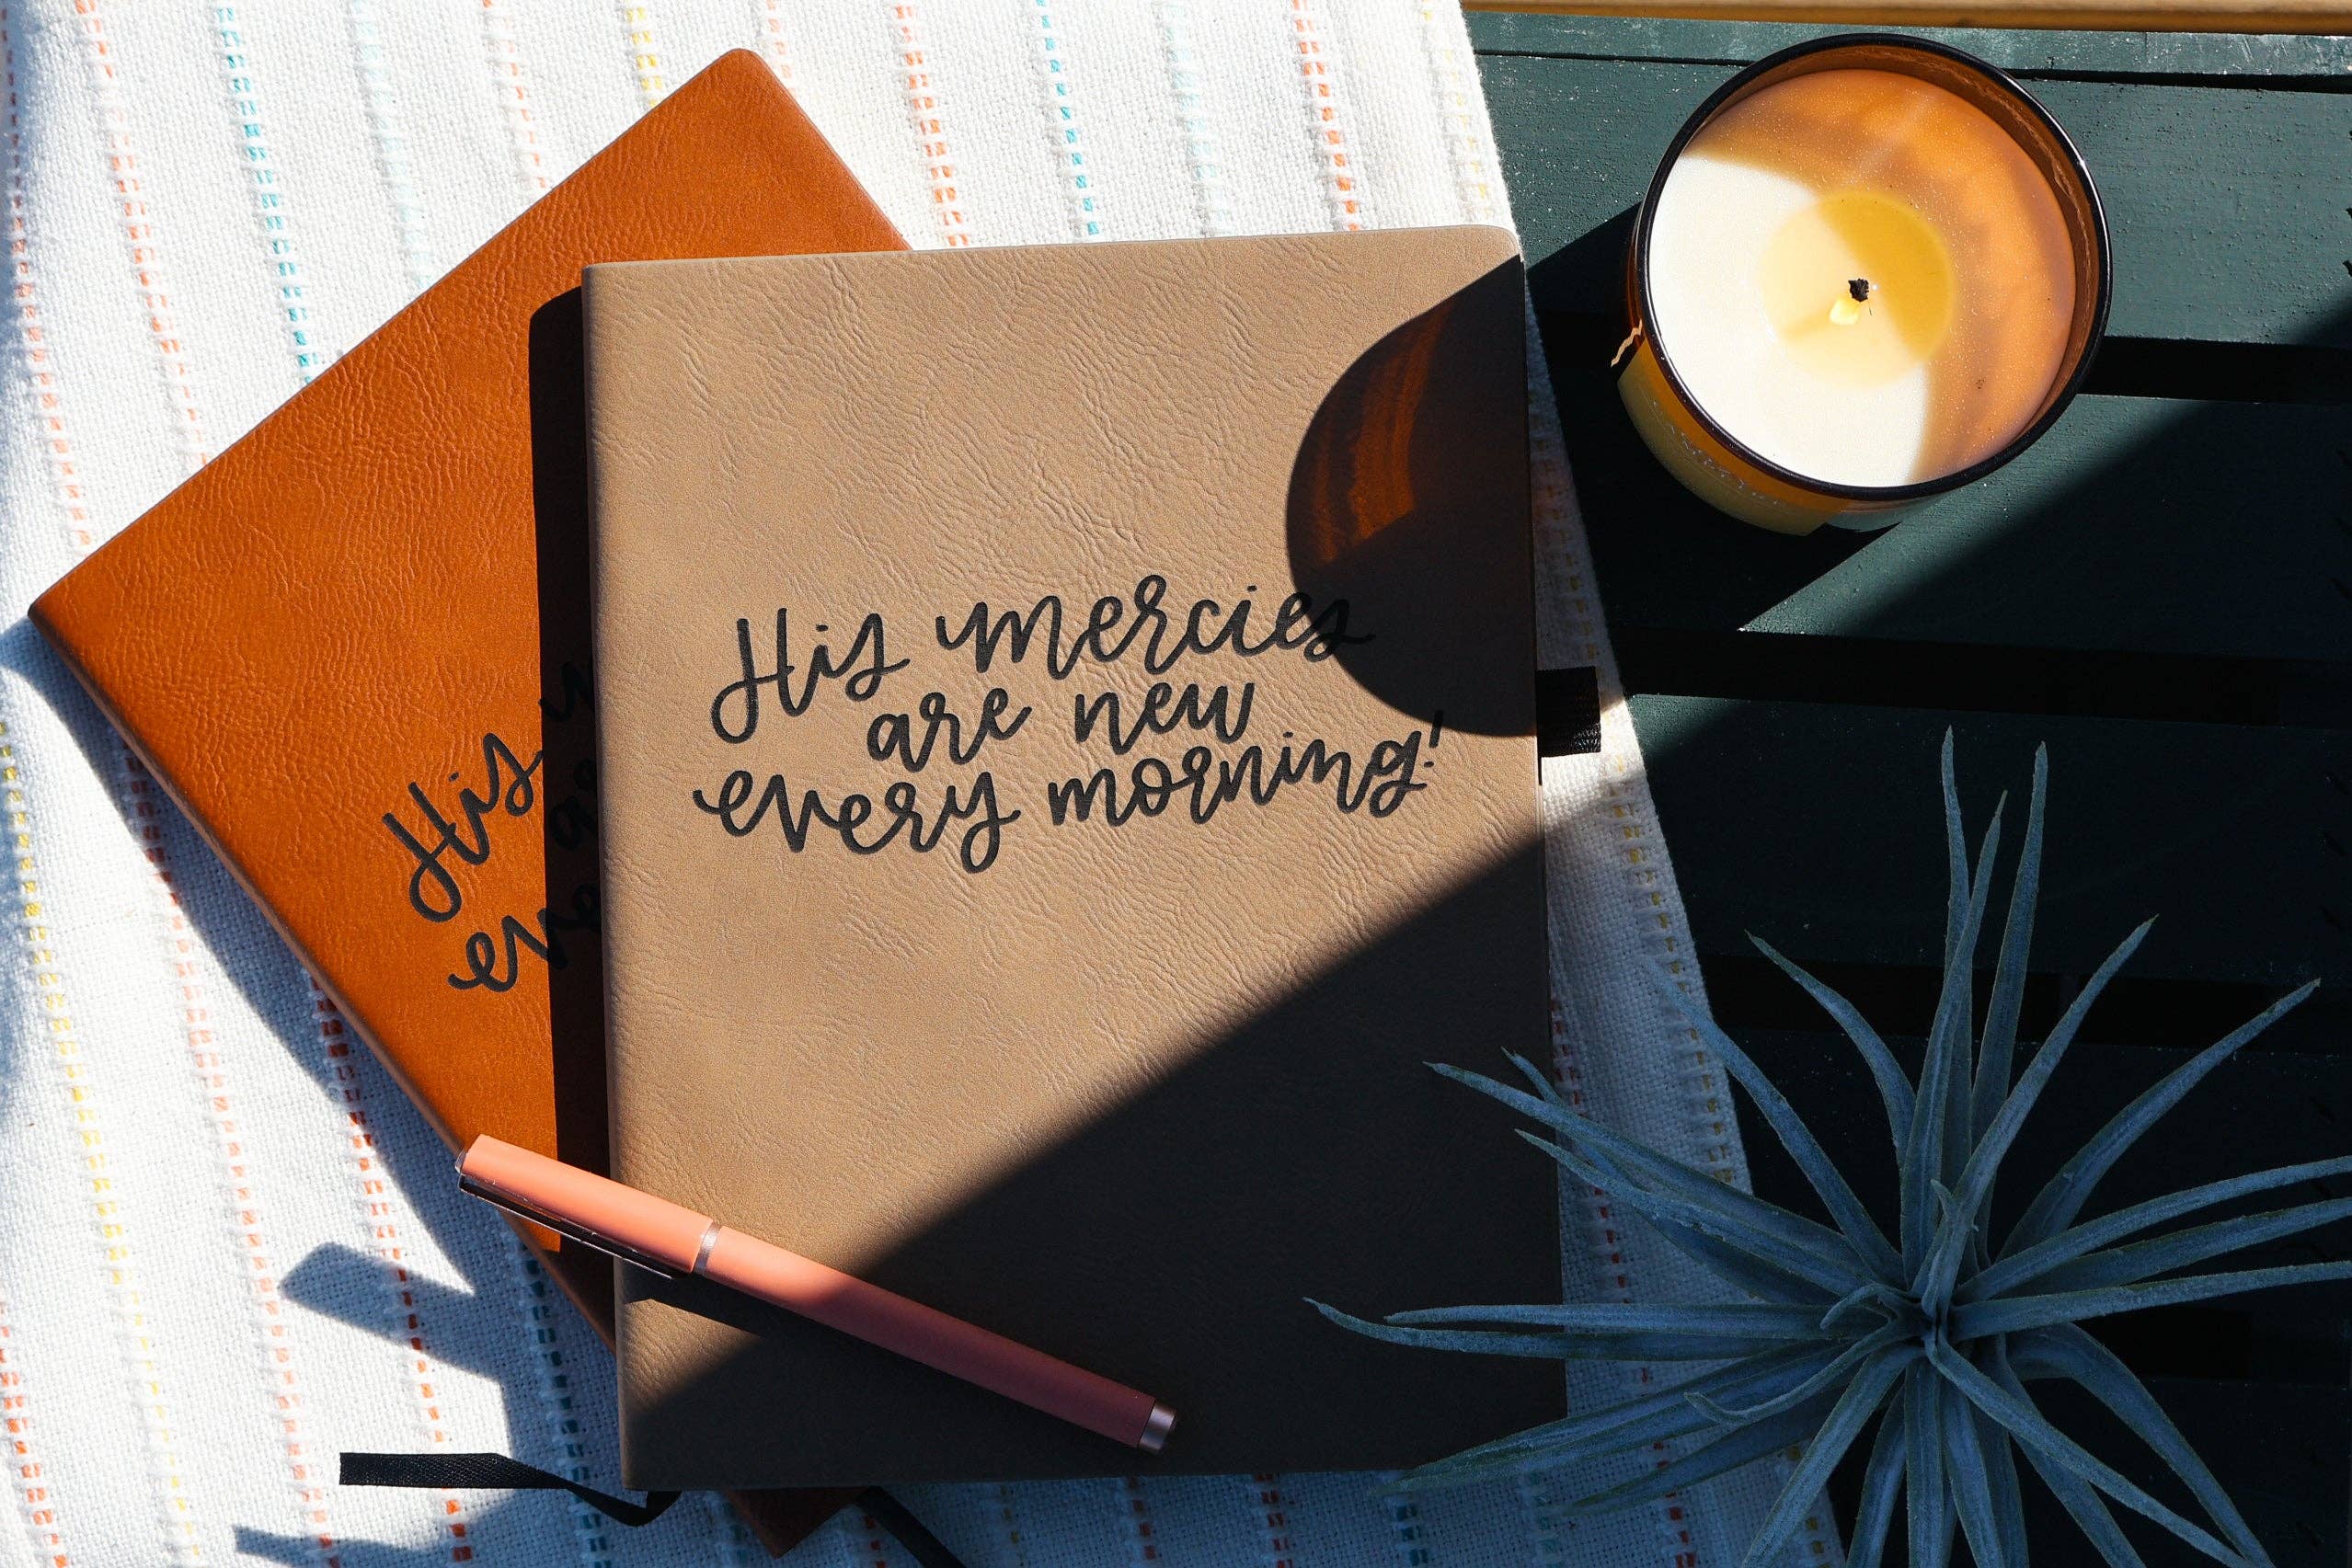 His mercies
are new
every morning!
His